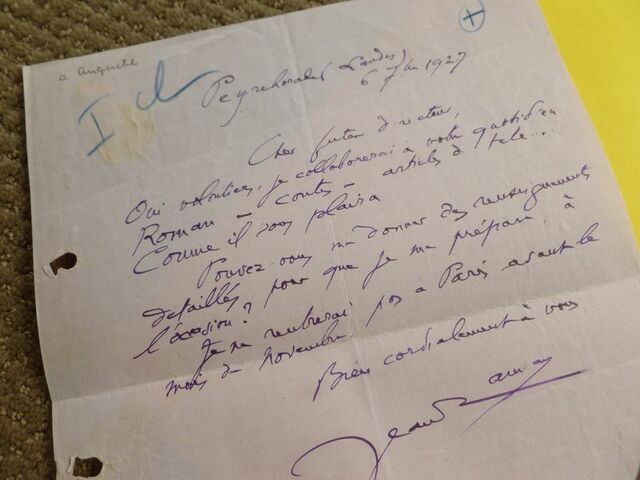 a Anquetil
Peyrehorade (Landes)
6 7bre 1927.
Cher futur directeur,
Oui volontiers, je collaborerai à votre quotidien
Roman – contes – articles de tête...
Comme il vous plaira
Pouvez-vous me donner des renseignements
détaillés, pour que je me prépare, à
l'occasion?
Je ne rentrerai pas à Paris avant le
mois de Novembre.
Bien cordialement à vous
Jean Rameau